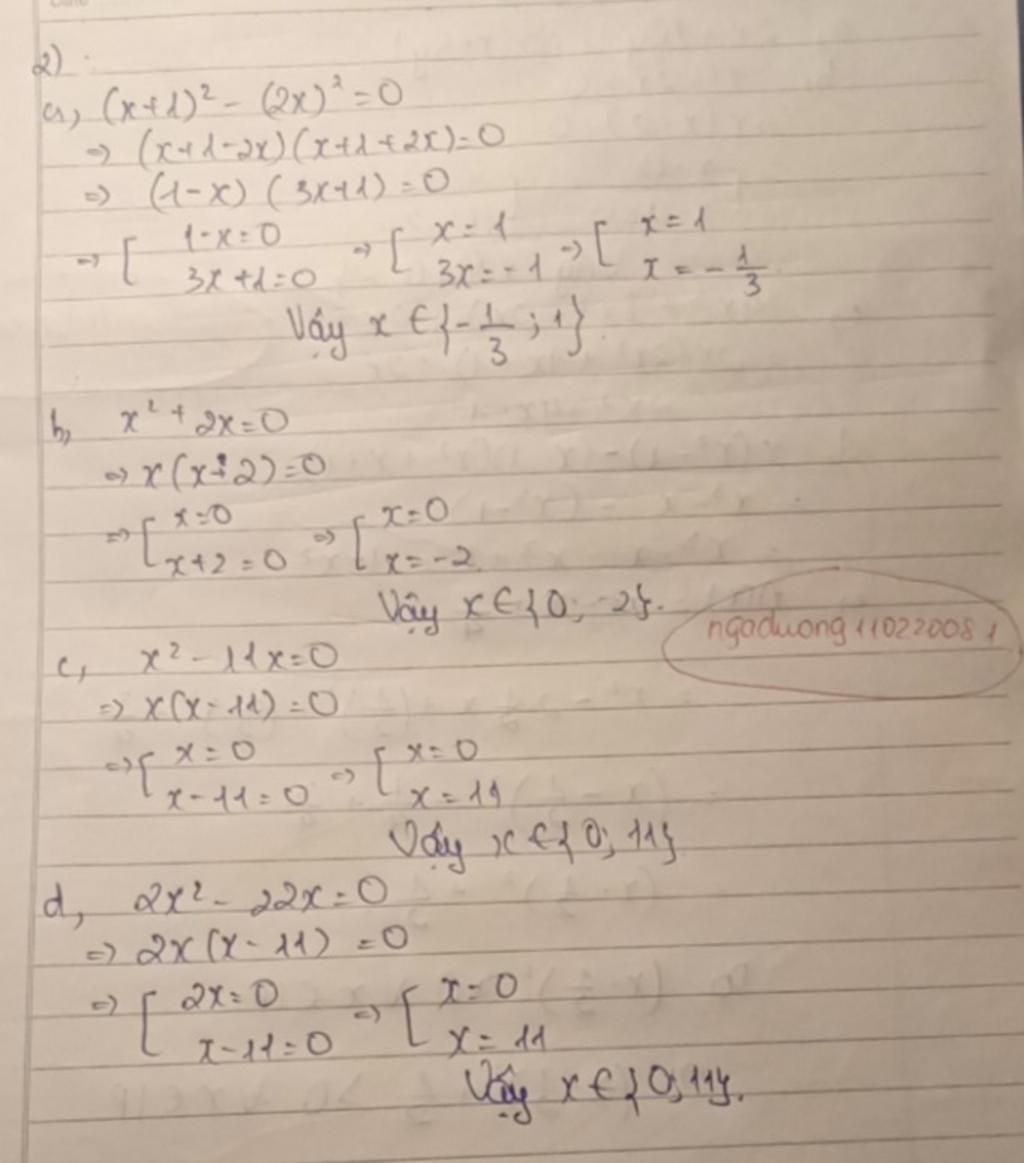 2)
a, (x+1)² - (2x)² = 0
=> (x+1-2x)(x+1+2x)=0
=> (1-x) (3x+1) = 0
=> [ 1-x=0 => [ x=1 => [ x=1
3x+1=0 3x=-1 x=-1/3
Vậy x ∈ {-1/3; 1}.
b, x² + 2x = 0
=> x(x+2)=0
=> [ x=0 => [ x=0
x+2=0 x=-2
Vậy x ∈ {0; -2}.
ngoduong11022008 1
c, x² - 11x=0
=> x(x-11)=0
=> [ x=0 => [ x=0
x-11=0 x=11
Vậy x ∈ {0; 11}
d, 2x² - 22x=0
=> 2x(x-11) =0
=> [ 2x=0 => [ x=0
x-11=0 x=11
Vậy x ∈ {0; 11}.